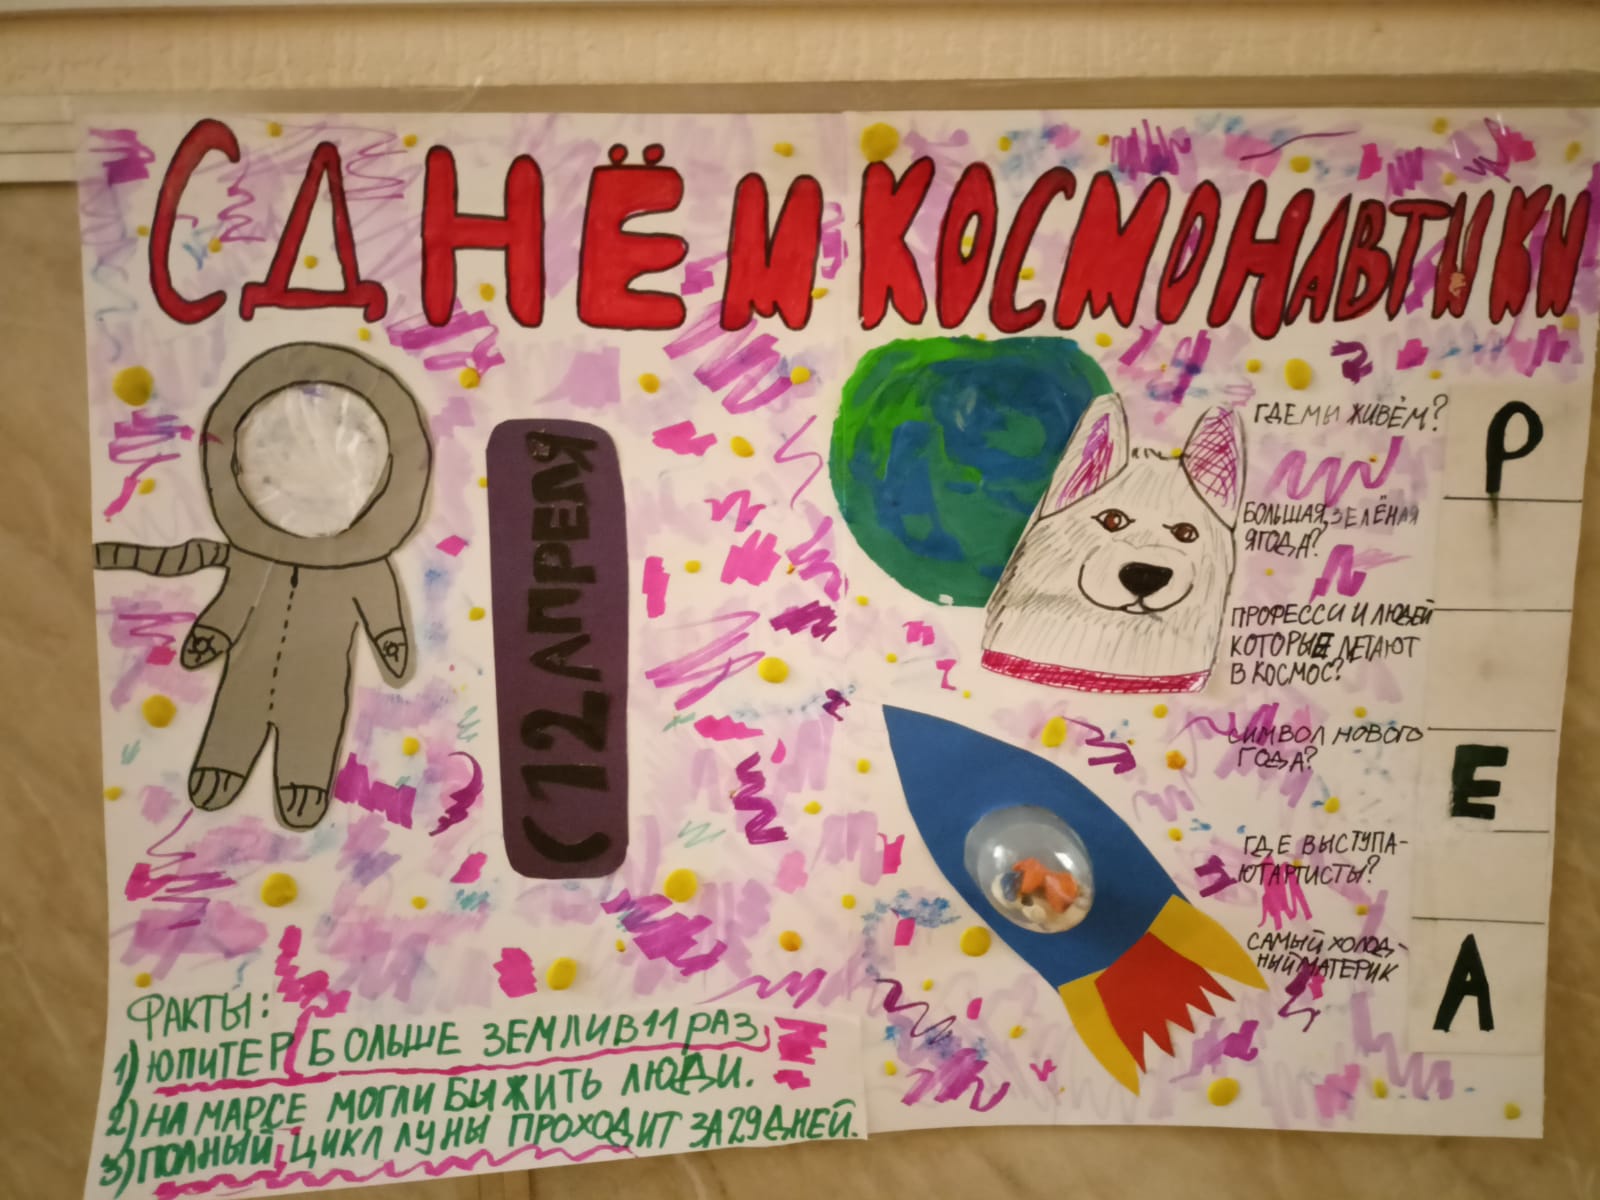 С ДНЁМ КОСМОНАВТИКИ
(12 АПРЕЛЯ
ГДЕ МЫ ЖИВЁМ?
БОЛЬШАЯ, ЗЕЛЁНАЯ
ЯГОДА?
ПРОФЕССИ И ЛЮДЕЙ
КОТОРЫЕ ЛЕТАЮТ
В КОСМОС?
СИМВОЛ НОВОГО
ГОДА?
ГДЕ ВЫСТУПА-
ЮТ АРТИСТЫ?
САМЫЙ ХОЛОД-
НЫЙ МАТЕРИК
Р
Е
А
ФАКТЫ:
1) ЮПИТЕР БОЛЬШЕ ЗЕМЛИ В 11 РАЗ
2) НА МАРСЕ МОГЛИ БЫ ЖИТЬ ЛЮДИ.
3) ПОЛНЫЙ ЦИКЛ ЛУНЫ ПРОХОДИТ ЗА 29 ДНЕЙ.